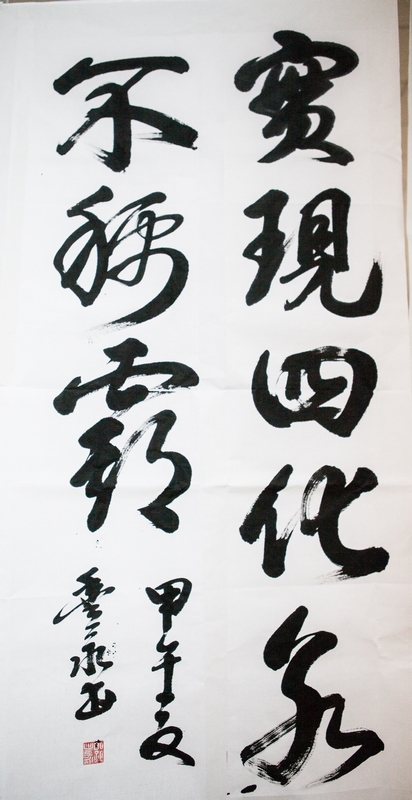 實現四化永
不稱霸
甲午夏
书